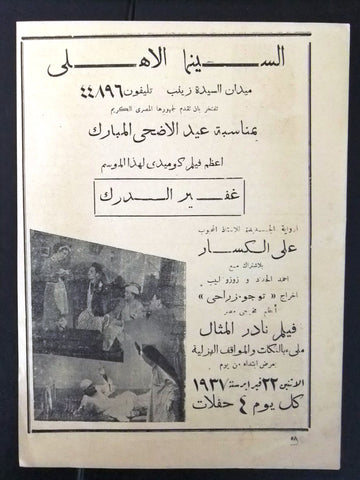 السينما الاهلى
ميدان السيدة زينب تليفون ٤٤٨٩٦
تفتخر بان تقدم لجمهورها المصرى الكريم
بمناسبة عيد الاضحى المبارك
اعظم فيلم كوميدى لهذا الموسم
غفير الدرك
الرواية الجديدة للاستاذ المحبوب
على الكسار
بالاشتراك مع
احمد الحداد و زوزو لبيب
اخراج « توجو مزراحى »
أعظم مخرجى مصر
فيلم نادر المثال
ملىء بالنكات والمواقف الهزلية
يعرض ابتداء من يوم
الاثنين ٢٢ فبراير سنة ١٩٣٧
كل يوم ٤ حفلات
٥٨